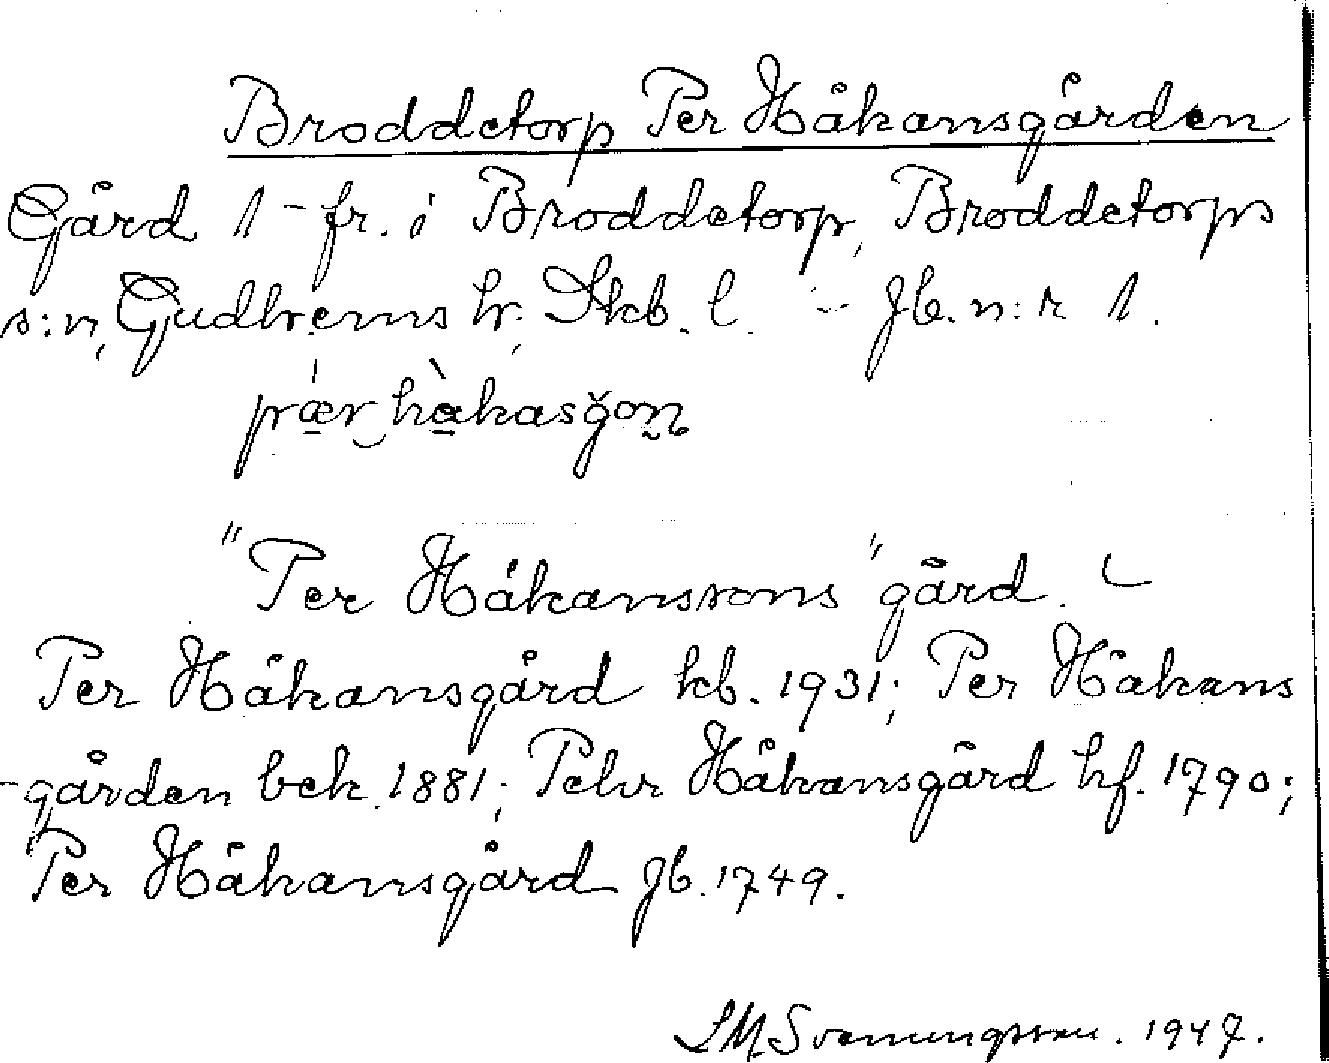 Broddetorp Per Håkansgården
Gård 1 - fr. i Broddetorp, Broddetorps
s:n, Gudhems hr, Skb. l. - Jb. n:r 1.
pær hàkasğon
"Per Håkanssons" gård.
Per Håkansgård kb. 1931; Per Håkans
-gården bek. 1881; Pehr Håkansgård hf. 1790;
Per Håkansgård Jb. 1749.
SM Svenungsson. 1947.